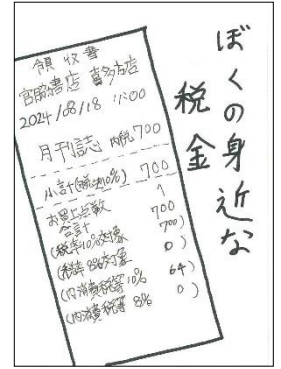 ぼくの身近な
税金
領収書
宮脇書店 喜多方店
2024/08/18 11:00
月刊誌 内税700
小計(税抜10%) 700
お買上点数 1
合計 700
(税率10%対象 700)
(税率8%対象 0)
(内消費税等10% 64)
(内消費税等 8% 0)